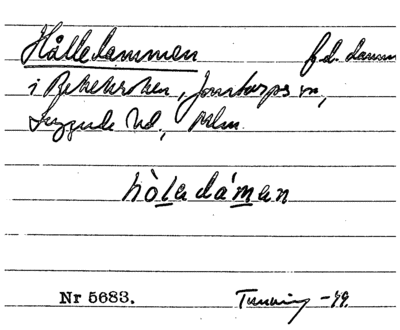 Hålledammen f.d. damm
i Rekekroken, Jonstorps sn,
Luggude hd, Mlm
hòladáman
Nr 5683. Tunning -49.